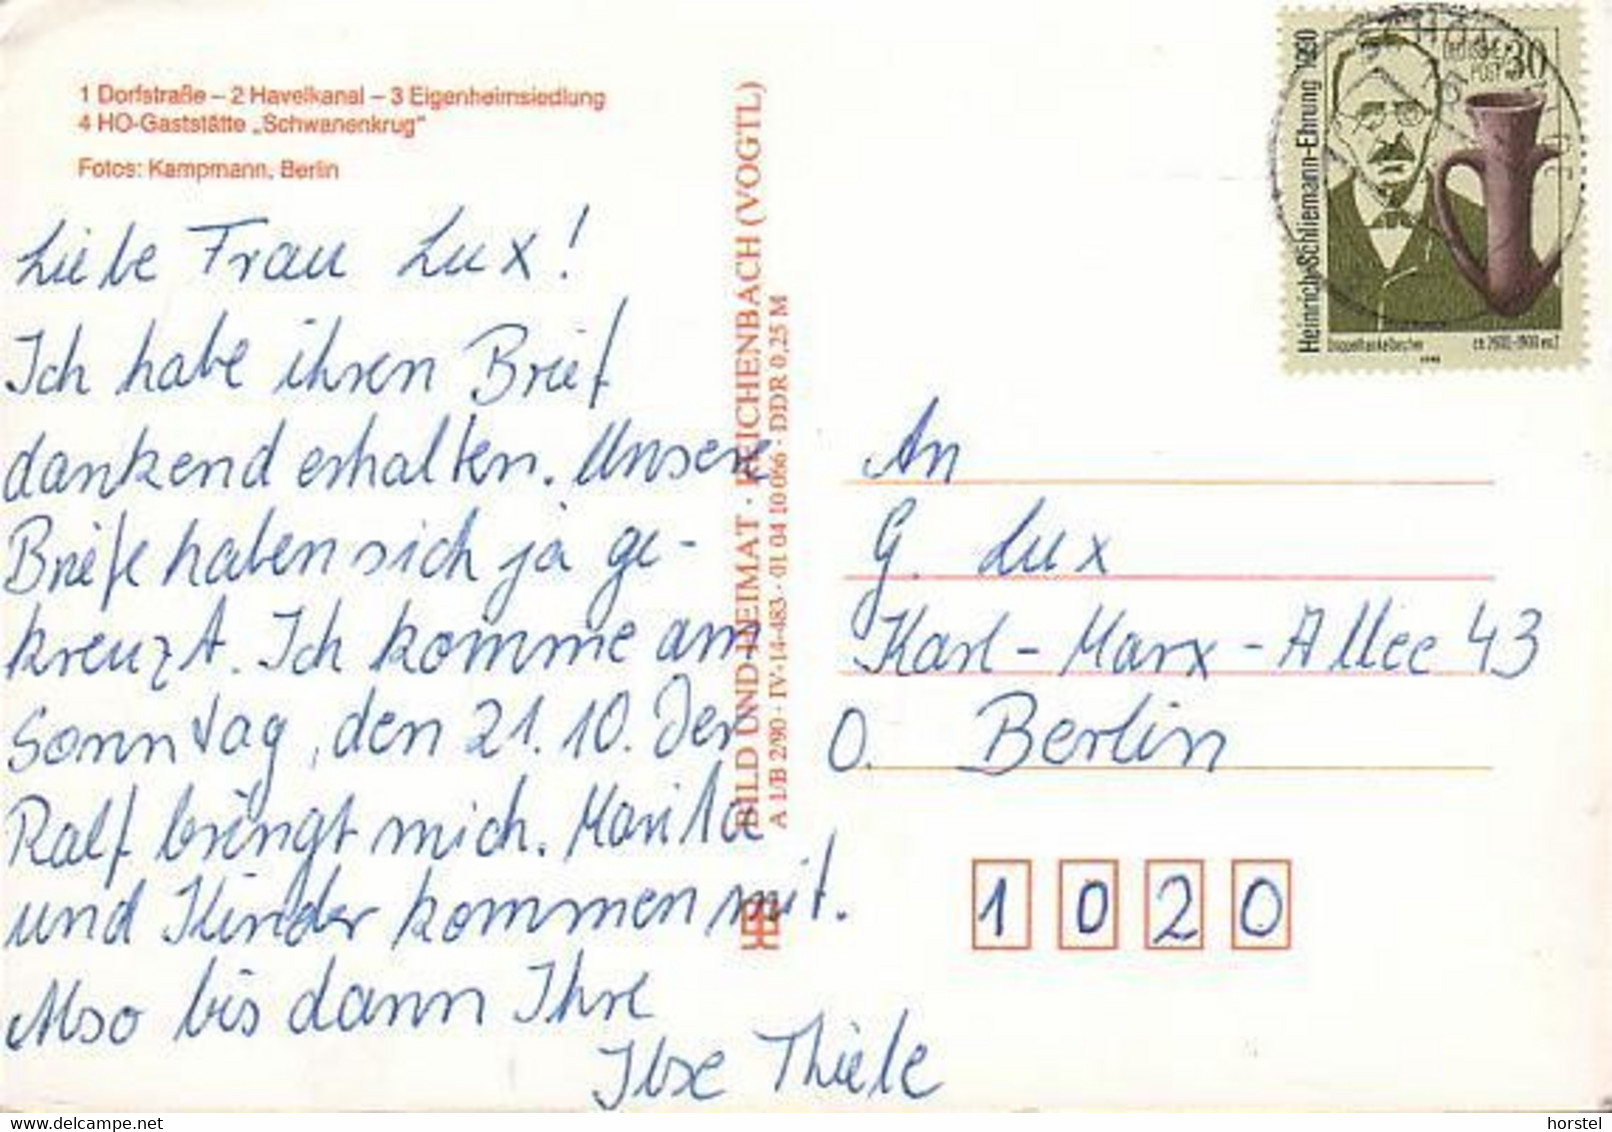 1 Dorfstraße – 2 Havelkanal – 3 Eigenheimsiedlung
4 HO-Gaststätte „Schwanenkrug“
Fotos: Kampmann, Berlin
Liebe Frau Lux!
Ich habe ihren Brief
dankend erhalten. Unsere
Briefe haben sich ja ge-
kreuzt. Ich komme am
Sonntag, den 21. 10. Der
Ralf bringt mich. Marita
und Kinder kommen mit.
Also bis dann Ihre
Ilse Thiele
BILD UND HEIMAT · REICHENBACH (VOGTL)
A 1/B 2/90 · IV-14-483 · 01 04 10 066 · DDR 0,25 M
Heinrich-Schliemann-Ehrung 1990
DEUTSCHE
POST 30
Doppelhenkelbecher
1990
An
G. Lux
Karl-Marx-Allee 43
O. Berlin
1020
horstel